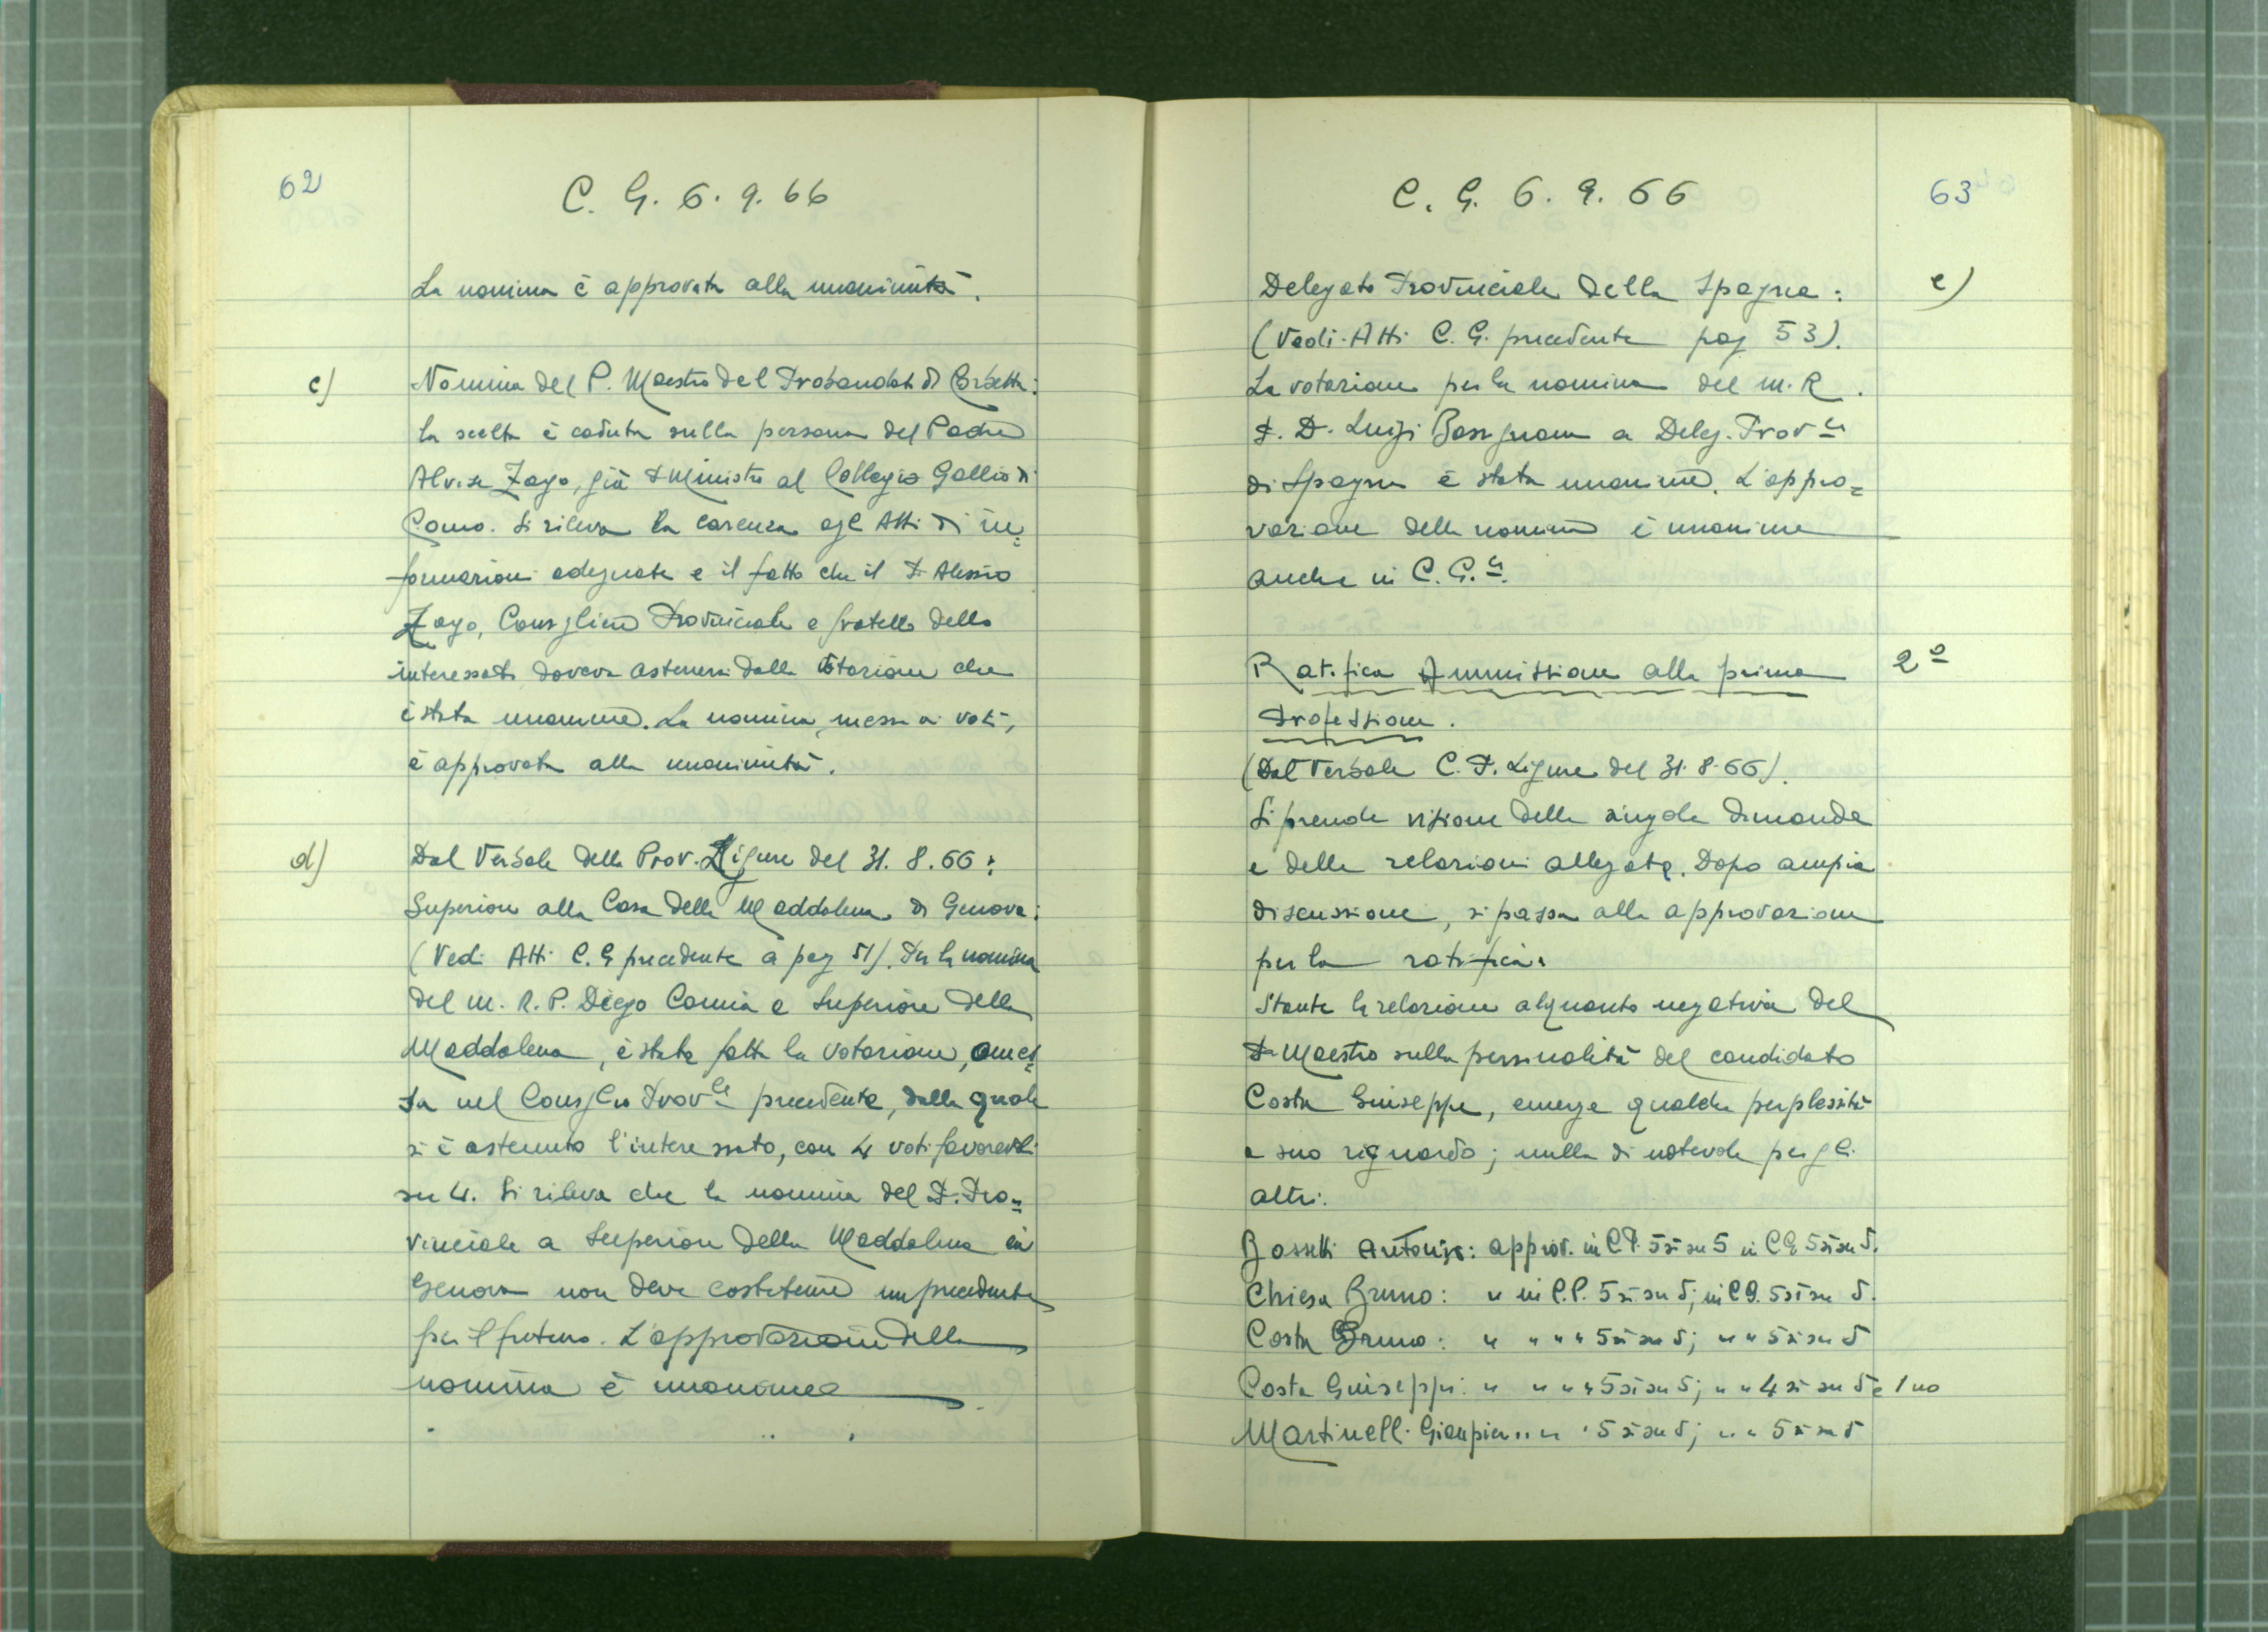 62
C. G. 6. 9. 66
La nomina è approvata alla unanimità.
c)
Nomina del P. Maestro del Probandato di Corbetta:
la scelta è caduta sulla persona del Padre
Alvise Zago, già P. Ministro al Collegio Gallio di
Como. Si rileva la carenza agli Atti di in=
formazioni adeguate e il fatto che il P. Alessio
Zago, Consigliere Provinciale e fratello dello
interessato doveva astenersi dalla votazione che
è stata unanime. La nomina, messa ai voti,
è approvata alla unanimità.
d)
Dal Verbale della Prov. Ligure del 31. 8. 66:
Superiore alla Casa della Maddalena di Genova:
(Vedi Atti C. G. precedente a pag 51). Per la nomina
del m. R. P. Diego Camia a Superiore della
Maddalena, è stata fatta la votazione, omes=
sa nel Consiglio Prov.le precedente, dalla quale
si è astenuto l'interessato, con 4 voti favorevoli
su 4. Si rileva che la nomina del P. Pro=
vinciale a Superiore della Maddalena in
Genova non deve costituire un precedente
per il futuro. L'approvazione della
nomina è unanime
C. G. 6. 9. 66
63
Delegato Provinciale della Spagna:
e)
(Vedi Atti C. G. precedente pag 53).
La votazione per la nomina del m. R.
P. D. Luigi Bassignana a Deleg. Prov.le
di Spagna è stata unanime. L'appro=
vazione della nomina è unanime
anche in C. G.le
Ratifica Ammissione alla prima
2º
Professione.
(Dal Verbale C. P. Ligure del 31. 8. 66).
Si prende visione delle singole domande
e delle relazioni allegate. Dopo ampia
discussione, si passa alla approvazione
per la ratifica:
Stante la relazione alquanto negativa del
P. Maestro sulla personalità del candidato
Costa Giuseppe, emerge qualche perplessità
a suo riguardo; nulla di notevole per gli
altri.
Bossetti Antonio: approv. in C.P. 5 sì su 5 in C.G. 5 sì su 5.
Chiesa Bruno: " in C.P. 5 sì su 5; in C.G. 5 sì su 5.
Costa Bruno: " " " " 5 sì su 5; " " 5 sì su 5
Costa Giuseppe: " " " " 5 sì su 5; " " 4 sì su 5 e 1 no
Martinelli Gianpiero " " " 5 sì su 5; " " 5 sì su 5